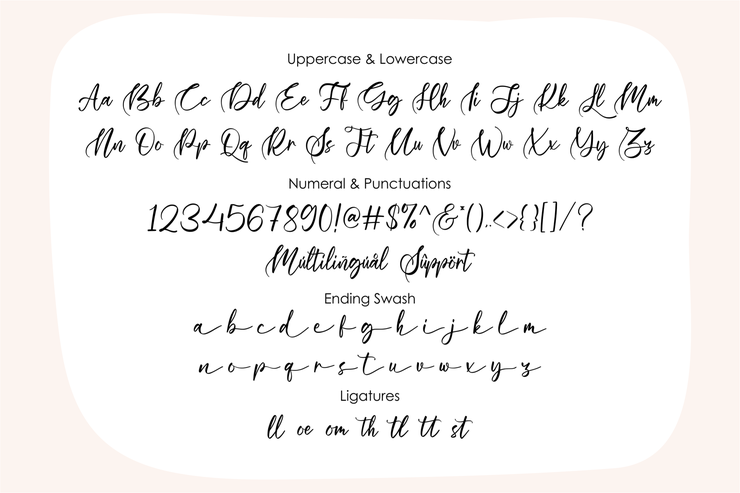 Uppercase & Lowercase
Aa Bb Cc Dd Ee Ff Gg Hh Ii Jj Kk Ll Mm
Nn Oo Pp Qq Rr Ss Tt Uu Vv Ww Xx Yy Zz
Numeral & Punctuations
1234567890!@#$%^&*().,<>{}[]/?
Múltilingúål Sûppört
Ending Swash
a b c d e f g h i j k l m
n o p q r s t u v w x y z
Ligatures
ll oe om th tl tt st